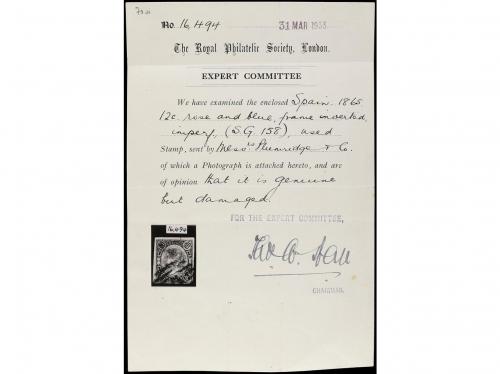 No. 16,494
31 MAR 1933
The Royal Philatelic Society, London.
EXPERT COMMITTEE
We have examined the enclosed Spain. 1865
12c. rose and blue, frame inverted,
imperf, (S.G. 158), used
Stamp, sent by Messrs Plumridge & Co.
of which a Photograph is attached hereto, and are
of opinion that it is genuine
but damaged.
FOR THE EXPERT COMMITTEE,
16,494
CHAIRMAN.